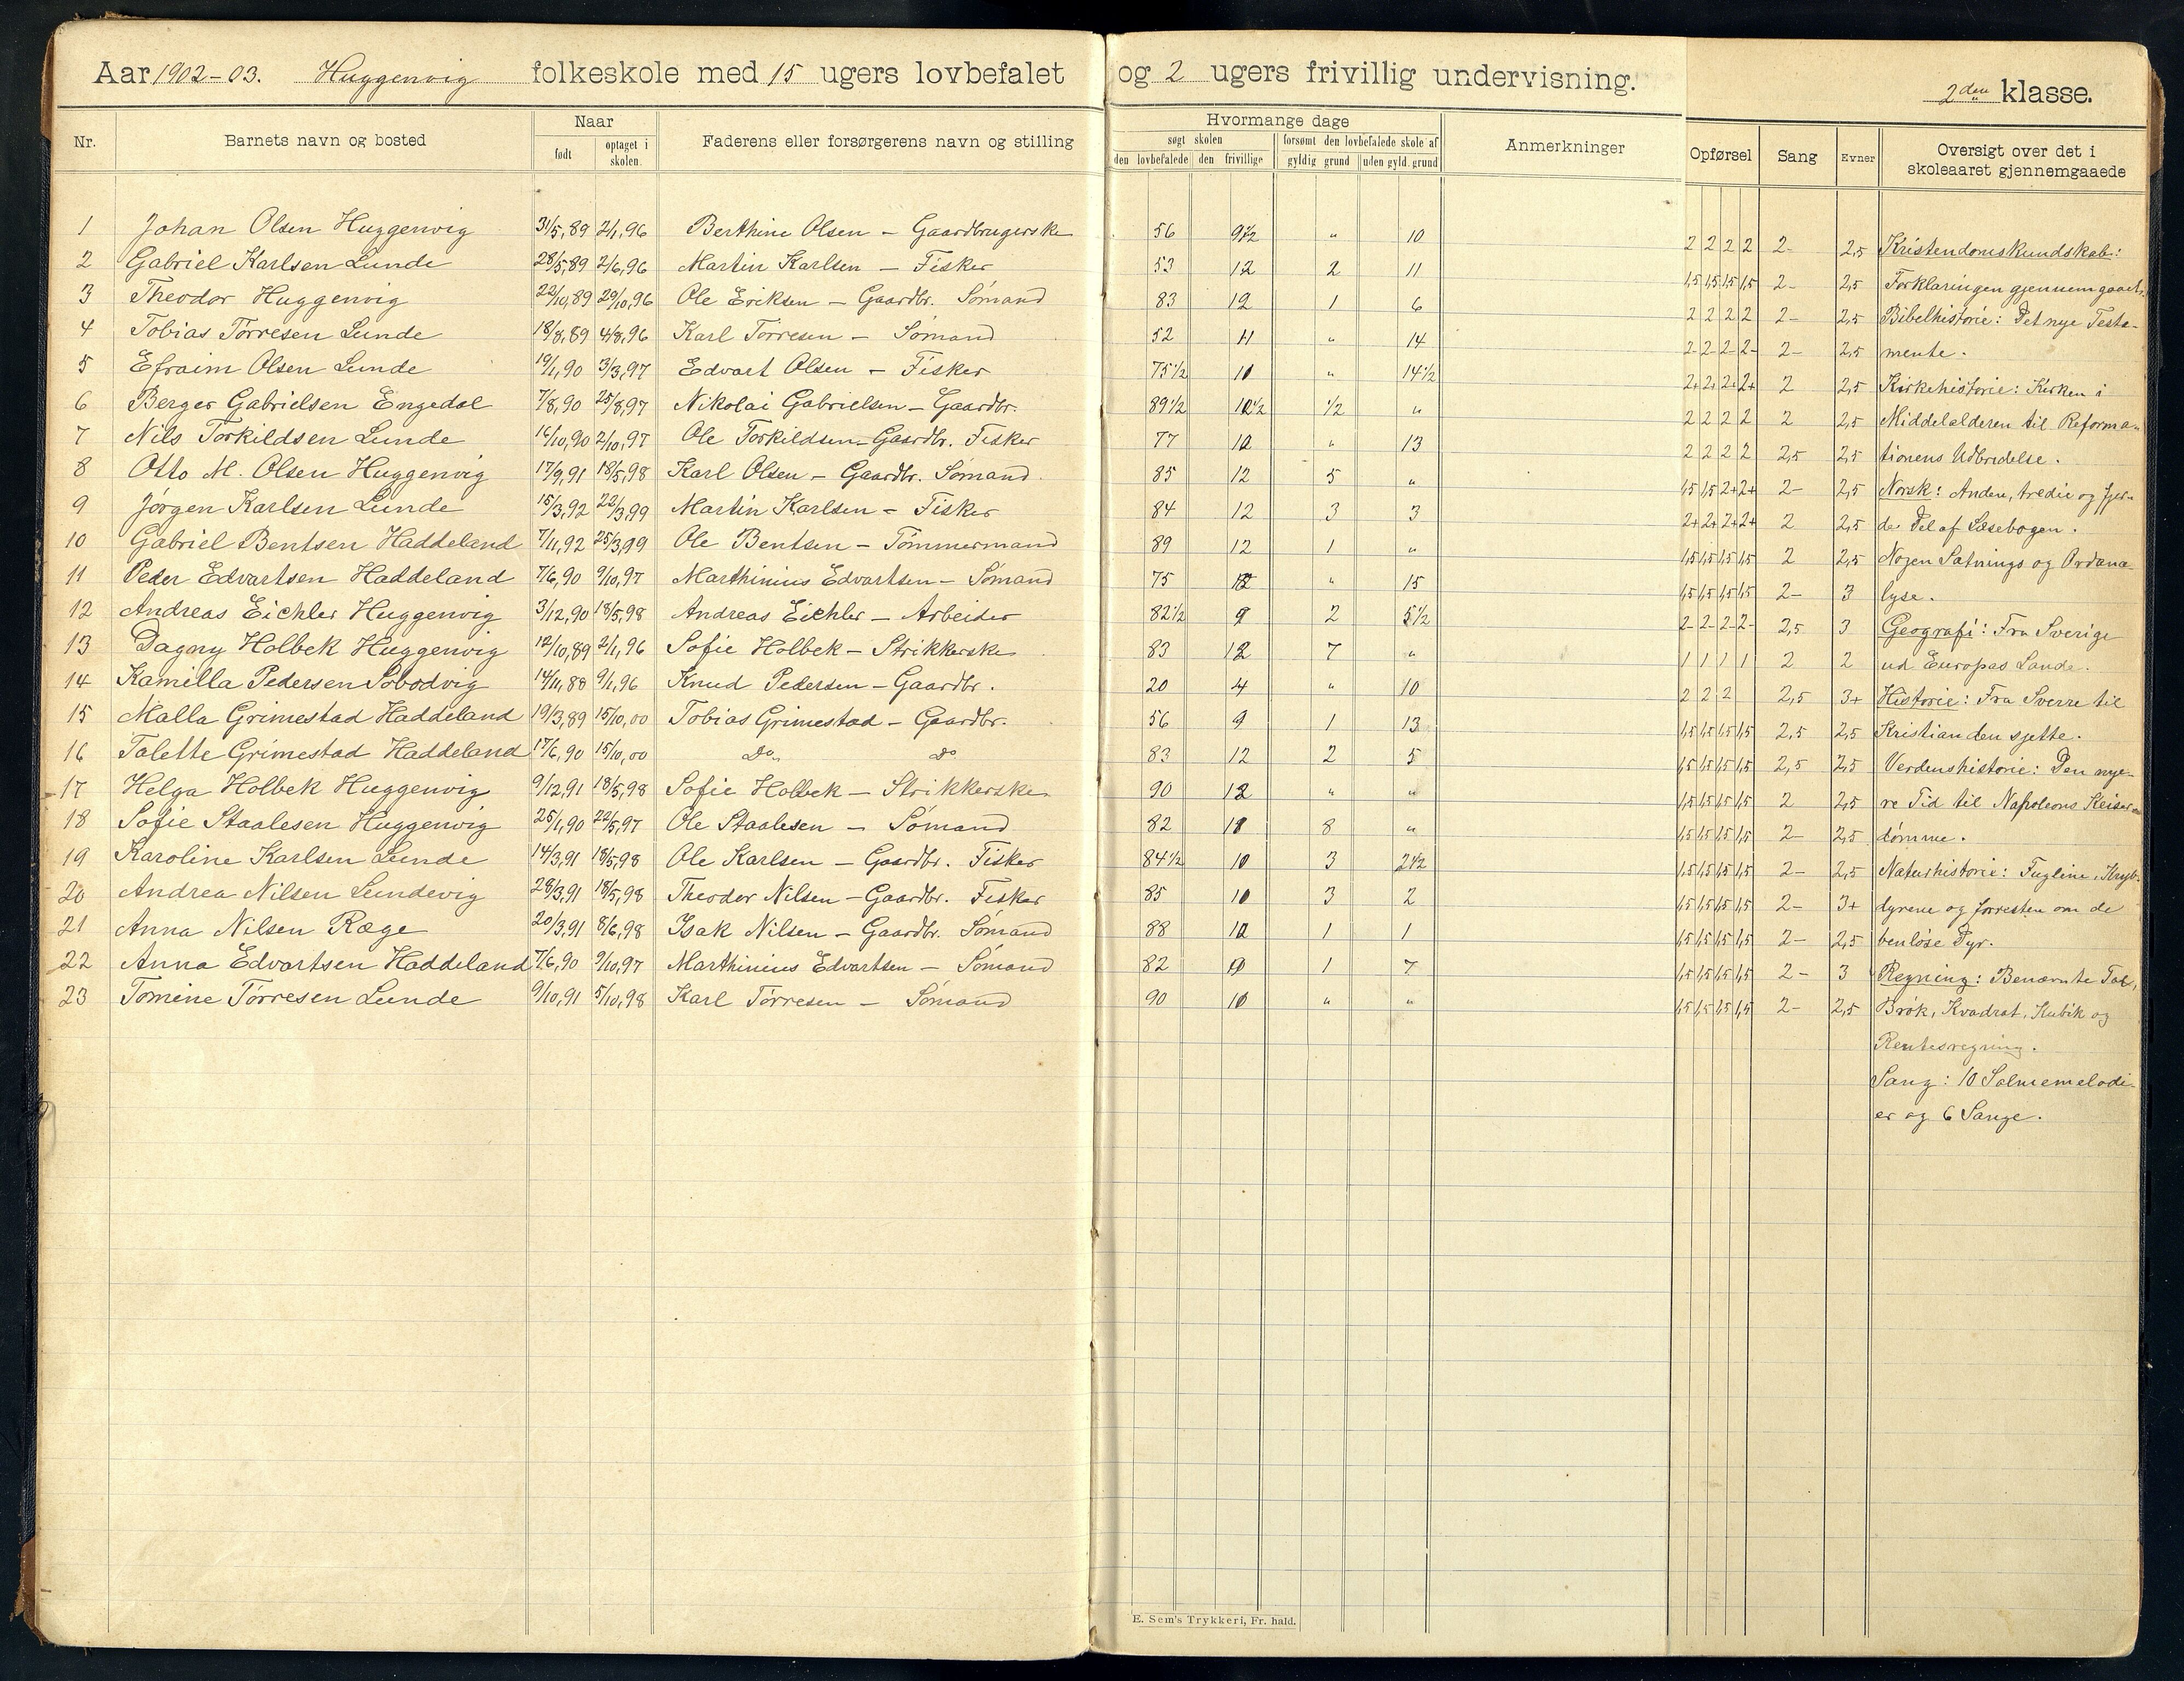 Aar 1902-03. Huggenvig folkeskole med 15 ugers lovbefalet og 2 ugers frivillig undervisning.
2den klasse.
Nr. Barnets navn og bosted Naar født optaget i skolen. Faderens eller forsørgerens navn og stilling
Hvormange dage søgt skolen den lovbefalede den frivillige forsømt den lovbefalede skole af gyldig grund uden gyld. grund Anmerkninger
Opførsel Sang Evner Oversigt over det i skoleaaret gjennemgaaede
1 Johan Olsen Huggenvig 31/5,89 2/1,96 Berthine Olsen - Gaardbrugerske 56 9 1/2 " 10 2 2 2 2 2- 2,5 Kristendomskundskab:
2 Gabriel Karlsen Lunde 28/5,89 2/6,96 Martin Karlsen - Fisker 53 12 2 11 1,5 1,5 1,5 1,5 2- 2,5 Forklaringen gjennemgaaet.
3 Theodor Huggenvig 22/10,89 20/10,96 Ole Eriksen - Gaardbr. Sømand 83 12 1 6 2 2 2 2 2- 2,5 Bibelhistorie: Det nye Testa-
4 Tobias Tørresen Lunde 18/8,89 4/8,96 Karl Tørresen - Sømand 52 11 " 14 2- 2- 2- 2- 2- 2,5 mente.
5 Efraim Olsen Lunde 19/1,90 3/3,97 Edvart Olsen - Fisker 75 1/2 10 " 14 1/2 2+ 2+ 2+ 2+ 2 2,5 Kirkehistorie: Kirken i
6 Berger Gabrielsen Engedal 7/8,90 25/8,97 Nikolai Gabrielsen - Gaardbr. 89 1/2 1/2 " 2 2 2 2 2 2,5 Middelalderen til Reforma-
7 Nils Torkildsen Lunde 16/10,90 2/10,97 Ole Torkildsen - Gaardbr. Fisker 77 12 " 13 2 2 2 2 2,5 2,5 tionens Udbredelse.
8 Otto M. Olsen Huggenvig 17/9,91 18/5,98 Karl Olsen - Gaardbr. Sømand 85 12 5 " 1,5 1,5 2+ 2+ 2- 2,5 Norsk: Anden, tredie og fjer-
9 Jørgen Karlsen Lunde 15/3,92 22/3,99 Martin Karlsen - Fisker 84 12 3 3 2+ 2+ 2+ 2+ 2 2,5 de Del af Læsebogen.
10 Gabriel Bentsen Haddeland 7/11,92 25/3,99 Ole Bentsen - Tømmermand 89 12 1 " 1,5 1,5 1,5 1,5 2 2,5 Nogen Sætnings og Ordana-
11 Peder Edvartsen Haddeland 7/6,90 9/10,97 Marthinius Edvartsen - Sømand 75 12 " 15 1,5 1,5 1,5 1,5 2- 3 lyse.
12 Andreas Eichler Huggenvig 3/12,90 18/5,98 Andreas Eichler - Arbeider 82 1/2 9 2 5 1/2 2- 2- 2- 2- 2,5 3 Geografi: Fra Sverige
13 Dagny Holbek Huggenvig 12/10,89 2/1,96 Sofie Holbek - Strikkerske 83 12 7 " 1 1 1 1 2 2 ud Europas Lande.
14 Kamilla Pedersen 14/11,88 9/1,96 Knud Pedersen - Gaardbr. 20 4 " 10 2 2 2 2,5 3+ Historie: Fra Sverre til
15 Malla Grimestad Haddeland 19/3,89 15/10,00 Tobias Grimestad - Gaardbr. 56 9 1 13 1,5 1,5 1,5 1,5 2,5 2,5 Kristian den sjette.
16 Talette Grimestad Haddeland 17/6,90 15/10,00 Do Do 83 12 2 5 1,5 1,5 1,5 1,5 2,5 2,5 Verdenshistorie: Den nye-
17 Helga Holbek Huggenvig 9/12,91 18/5,98 Sofie Holbek - Strikkerske 90 12 " " 1,5 1,5 1,5 1,5 2 2,5 re Tid til Napoleons Keiser-
18 Sofie Staalesen Huggenvig 25/1,90 22/5,97 Ole Staalesen - Sømand 82 8 " 1,5 1,5 1,5 1,5 2- 2,5 dømme.
19 Karoline Karlsen Lunde 14/3,91 18/5,98 Ole Karlsen - Gaardbr. Fisker 84 1/2 10 3 2 1/2 1,5 1,5 1,5 1,5 2- 2,5 Naturhistorie: Fuglene, Kryb-
20 Andrea Nilsen Lundevig 28/3,91 18/5,98 Theodor Nilsen - Gaardbr. Fisker 85 10 3 2 1,5 1,5 1,5 1,5 2- 3+ dyrene og forresten om de
21 Anna Nilsen Ræge 20/3,91 8/6,98 Isak Nilsen - Gaardbr. Sømand 88 12 1 1 1,5 1,5 1,5 1,5 2- 2,5 benløse Dyr.
22 Anna Edvartsen Haddeland 7/6,90 9/10,97 Marthinius Edvartsen - Sømand 82 1 7 1,5 1,5 1,5 1,5 2- 3 Regning: Benævnte Tal,
23 Tomine Tørresen Lunde 9/10,91 5/10,98 Karl Tørresen - Sømand 90 10 " " 1,5 1,5 1,5 1,5 2- 2,5 Brøk, Kvadrat, Kubik og
Rentesregning.
Sang: 10 Salmemelodi-
er og 6 Sange.
E. Sem's Trykkeri, Fr. hald.